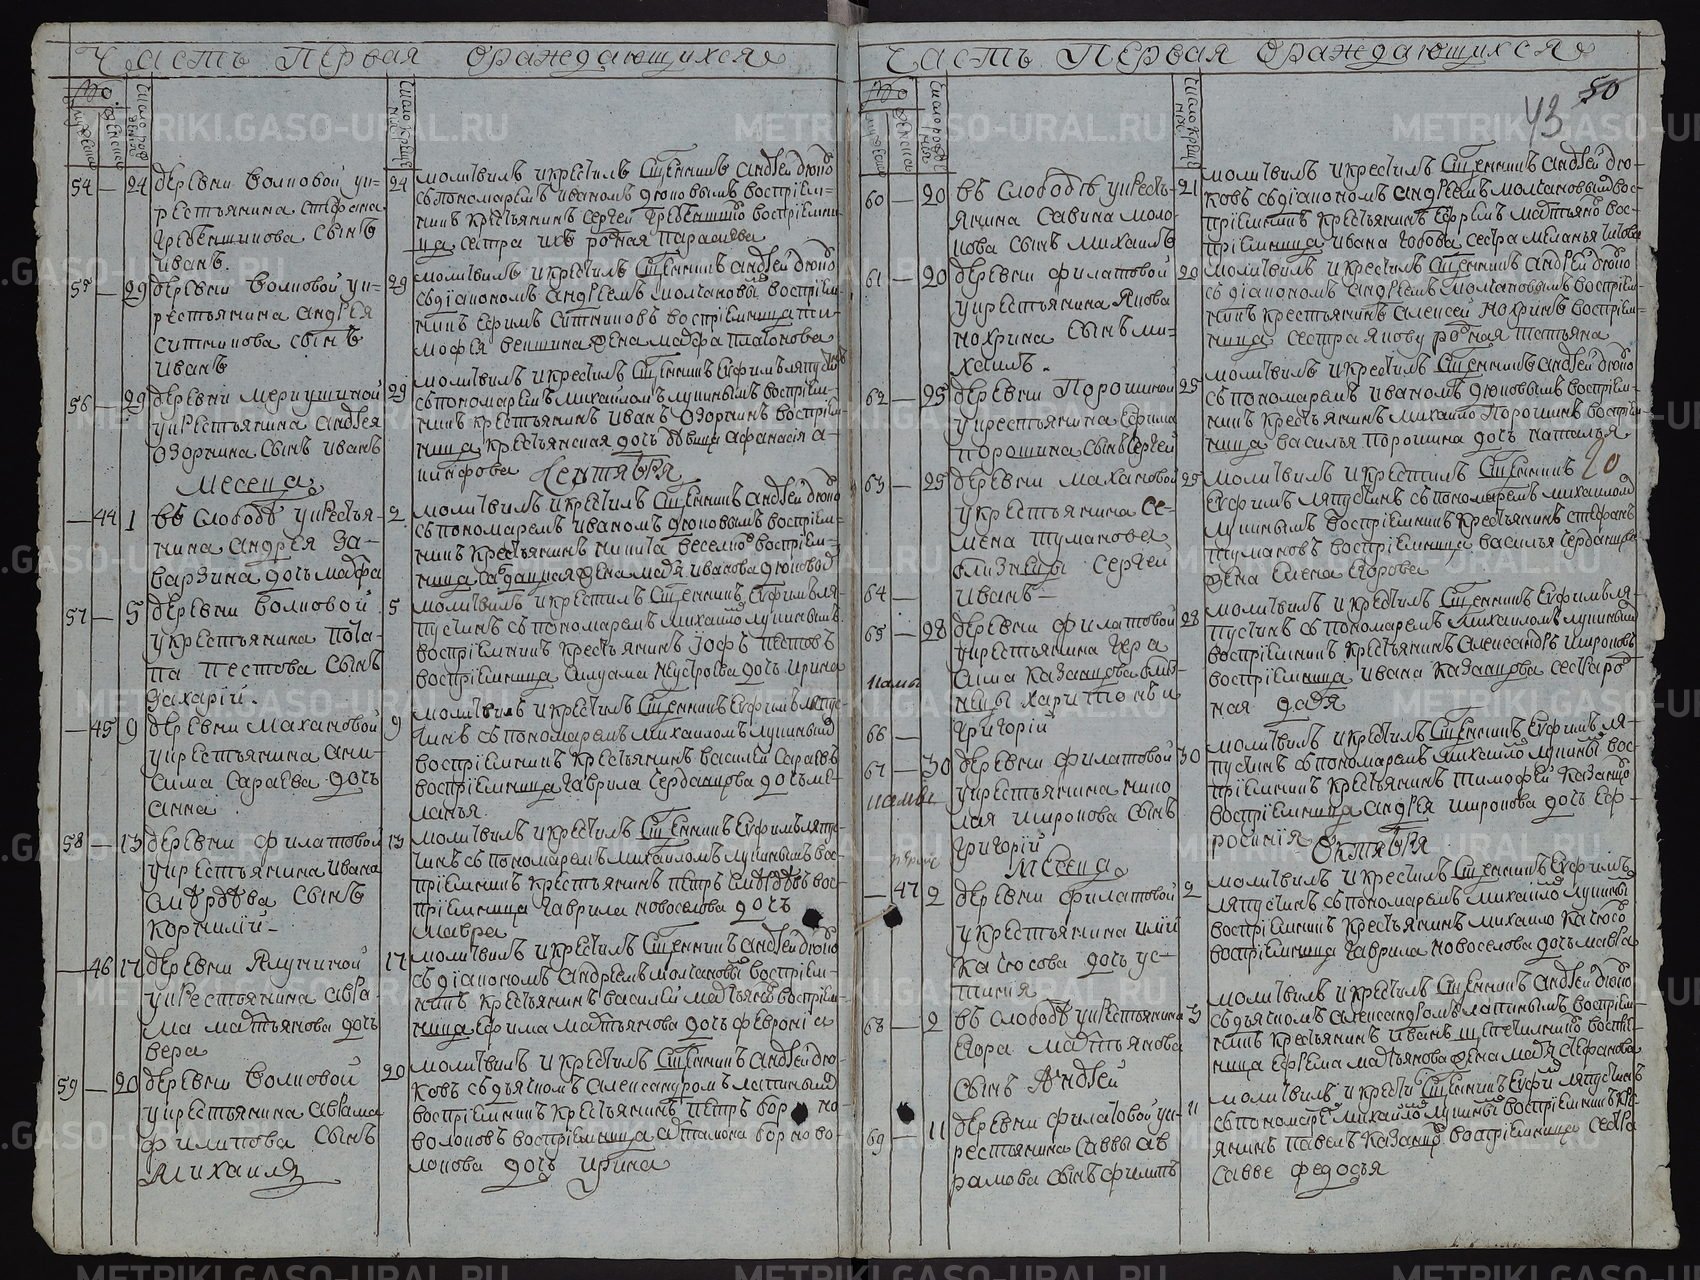 Часть Первая ораждающихся
No
мужеска
женска
число рожденiя
число крещенiя
54 — 24
деревни волковой у к-
рестьянина стефана
гребенщикова сынъ
иванъ.
24
молитвилъ и крестилъ Сщенникъ андрей дюко
съ пономаремъ иваномъ дюковымъ воспрiем-
никъ крестьянинъ сергей гребенщико воспрiемни-
ца сестра ихъ родная параскева
55 — 29
деревни волковой у к-
рестьянина андрея
ситникова сынъ
иванъ
29
молитвилъ и крестилъ Сщенникъ андрей дюко
съ дiакономъ андреемъ молчановы воспрiем-
никъ ефимъ ситниковъ воспрiемница ти-
мофея векшина жена мафа платонова
56 — 29
деревни меркушиной
у крестьянина андрея
озоркина сынъ иванъ
29
молитвилъ и крестилъ Сщенникъ ефимъ ляпусти
съ пономаремъ михаиломъ лукинымъ воспрiем-
никъ крестьянинъ иванъ озоркинъ воспрiем-
ница крестьянская дочь девица афанасiя а-
никифова
месеца Сентября
— 44 1
въ слободе у крестья-
нина андрея за-
варзина дочь мафа
2
молитвилъ и крестилъ Сщенникъ андрей дюко
съ пономаремъ иваномъ дюковымъ воспрiем-
никъ крестьянинъ никита веселко воспрiем-
ница салдацкая жена мадя иванова дюковой
57 — 5
деревни волковой
у крестьянина пота-
па пестова сынъ
захарiй.
5
молитвилъ и крестилъ Сщенникъ ефимъ ля-
пустинъ съ пономаремъ михаило лукинымъ
воспрiемникъ крестьянинъ iофъ пестовъ
воспрiемница силуана неустроева дочь ирина
— 45 9
деревни махановой
у крестьянина ани-
сима сараева дочь
анна
9
молитвилъ и крестилъ Сщенникъ ефимъ ляпус-
тинъ съ пономаремъ михаиломъ лукины
воспрiемникъ крестьянинъ василей сараевъ
воспрiемница гаврила сердакцова дочь ме-
ланья.
58 — 13
деревни филатовой
у крестьянина ивана
смердева сынъ
корнилiй-
13
молитвилъ и крестилъ Сщенникъ ефимъ ляпус-
тинъ съ пономаремъ михаиломъ лукинымъ вос-
прiемникъ крестьянинъ петръ смердевъ вос-
прiемница гаврила новоселова дочь
мавра
— 46 17
деревни ялуниной
у крестьянина авра-
ма мадтьянова дочь
вера
17
молитвилъ и крестилъ Сщенникъ андрей дюко
съ дiакономъ андреемъ молчановы воспрiем-
никъ крестьянинъ василей мадтьяно воспрiем-
ница ефима мадтьянова дочь февронiа
59 — 20
деревни волковой
у крестьянина аврама
филипова сынъ
Михаилъ
20
молитвилъ и крестилъ Сщенникъ андрей дю-
ковъ съ дьячкомъ александромъ лапиным
воспрiемникъ крестьянинъ петръ бор но-
волоковъ воспрiемница антипина борново-
локова дочь ирина
Часть Первая ораждающихся
50
43
No
мужеска
женска
число рожденiя
число крещенiя
60 — 20
въ слободе у кресть-
янина савина моло-
кова сынъ михаилъ
21
молитвилъ и крестилъ Сщенникъ андрей дю-
ковъ съ дiакономъ андреемъ молчановы вос-
прiемникъ крестьянинъ ефремъ мадтьяно вос-
прiемница ивана гобова сестра меланья титова
61 — 20
деревни филатовой
у крестьянина якова
мохрина сынъ ми-
хаилъ.
20
молитвилъ и крестилъ Сщенникъ андрей дюко
съ дiакономъ андреемъ молчановымъ воспрiем-
никъ крестьянинъ алексей мохринъ воспрiем-
ница сестра якову родная татьяна
62 — 25
деревни Порошиной
у крестьянина ефима
порошина сынъ сергей
25
молитвилъ и крестилъ Сщенникъ андрей дюко
съ пономаремъ иваномъ дюковымъ воспрiем-
никъ крестьянинъ михаило порошинъ воспрiем-
ница василья порошина дочь наталья
20
63 — 25
деревни махановой
у крестьянина се-
мена туманова
близнецы сергей
64 —
иванъ
25
молитвилъ и крестилъ Сщенникъ
ефимъ ляпустинъ съ пономаремъ михаиломъ
лукинымъ воспрiемникъ крестьянинъ стефанъ
тумановъ воспрiемница василья сердакцова
жена елена егорова
65 — 28
деревни филатовой
у крестьянина гера
сима казанцова близ-
нецы харитонъ и
66 —
григорiй
28
молитвилъ и крестилъ Сщенникъ ефимъ ля-
пустинъ съ пономаремъ михаиломъ лукины
воспрiемникъ крестьянинъ александръ широковъ
воспрiемница ивана казанцова сестра ро
ная дадя
67 — 30
деревни филатовой
у крестьянина нико
лая широкова сынъ
григорiй
30
молитвилъ и крестилъ Сщенникъ ефимъ ля-
пустинъ съ пономаремъ михаило лукины вос-
прiемникъ крестьянинъ тимофей казанцо
воспрiемница андрея широкова дочь еф-
росинiя
Месеца Октября
— 47 2
деревни филатовой
у крестьянина илiи
качюсова дочь ус-
тинiя
2
молитвилъ и крестилъ Сщенникъ ефимъ
ляпустинъ съ пономаремъ михаило лукины
воспрiемникъ крестьянинъ михаило качюсо
воспрiемница гаврила новоселова дочь мавра
68 — 2
въ слободе у крестьянина
егора мадтьянова
сынъ Андрей
3
молитвилъ и крестилъ Сщенникъ андрей дюко
съ дьячкомъ александромъ лапинымъ воспрiем-
никъ крестьянинъ иванъ щепеткинъ воспрiем-
ница ефрема мадтьянова жена мадя стефанова
69 — 11
деревни филатовой у к-
рестьянина саввы ав
рамова сынъ филипъ
11
молитвилъ и крести Сщенникъ ефи ляпустинъ
съ пономаре михаило лукины воспрiемникъ кре-
янинъ павелъ казанцо воспрiемница сестра
савве федосья